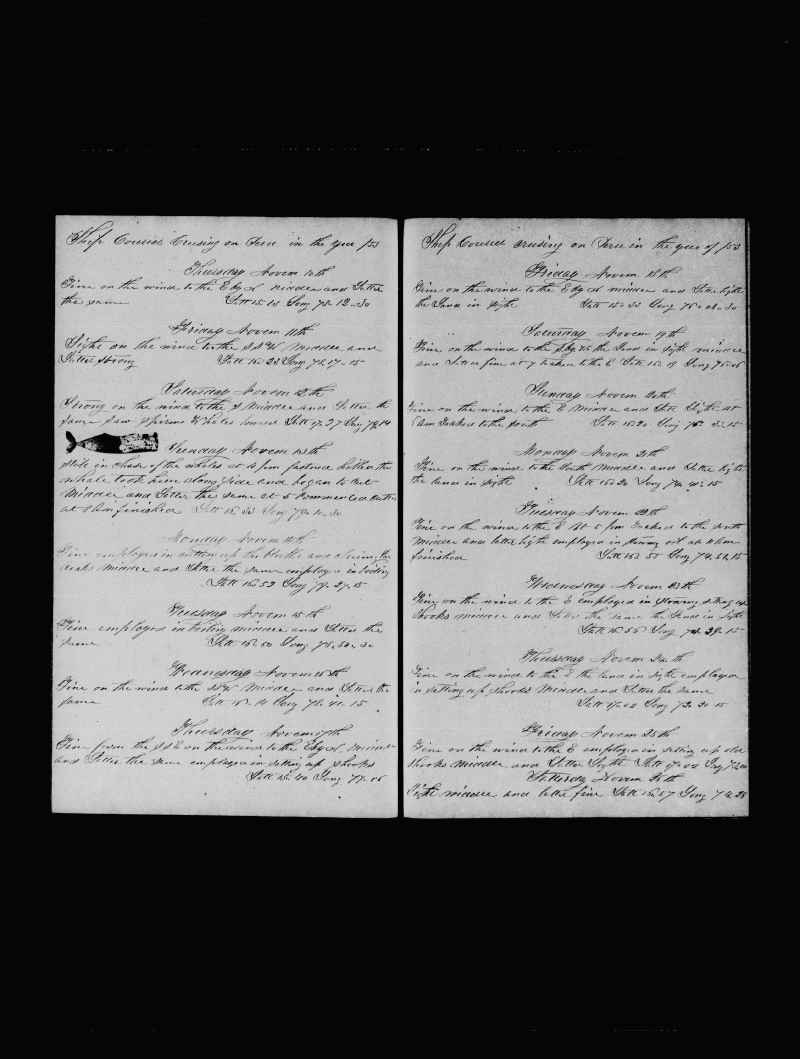 Ship Cruising on Peru in the year /53
Thursday Novem 10th
Fine on the wind to the E by N middle and Latter
the same Latt 15 Long 78-12-30
Friday Novem 11th
Light on the wind to the SSW Middle and
Latter strong Latt 16-23 Long 78-17-15
Saturday Novem 12th
Strong on the wind to the S Middle and Latter the
same Saw Sperm Whales Latt 17-27 Long
Sunday Novem 13th
Still in chase of the whales at pm fastened
whale took him along side and began to cut
Middle and Latter the same at 5 commenced
at finished Latt Long
Monday Novem 14th
Fine employed in the and the
decks Middle and Latter the same employed in boiling
Latt 16-52 Long 78-27-15
Tuesday Novem 15th
Fine employed in boiling middle and Latter the
same Latt 16-50 Long 78-50-30
Wednesday Novem 16th
Fine on the wind to the Middle and Latter the
same Latt 16-14 Long 78-41-15
Thursday Novem 17th
Fine from the SSE on the wind to the E by N Middle
and Latter the same employed in setting up shooks
Latt 15-40 Long 77-06
Ship Cruising on Peru in the year of /53
Friday Novem 18th
Fine on the wind to the E by N middle and Latter light
the Land in sight Latt 15-32 Long 76-02-30
Saturday Novem 19th
Fine on the wind to the S by W the Land in sight middle
and Latter fine at 7 tacked to the E Latt 16-19 Long 76-06
Sunday Novem 20th
Fine on the wind to the E Middle and Latt Light at
tacked to the South Latt 15-20 Long 75
Monday Novem 21th
Fine on the wind to the South Middle and Latter light
the land in sight Latt 16-20 Long 74-41-15
Tuesday Novem 22th
Fine on the wind to the E At 5 pm tacked to the South
Middle and latter light employed in stowing oil at
finished Latt 16-55 Long 74-51-15
Wednesday Novem 23th
Fine on the wind to the E employed in stowing setting up
shooks middle and Latter the same the Land in sight
Latt 16-55 Long 73-39-15
Thursday Novem 24th
Fine on the wind to the E the land in sight employed
in setting up shooks Middle and Latter the same
Latt 17-02 Long 72-20-15
Friday Novem 25th
Fine on the wind to the E employed in setting up old
shooks Middle and Latter Light Latt 17-04 Long
Satturday Novem 26th
Light middle and latter fine Latt 16-57 Long 72-23